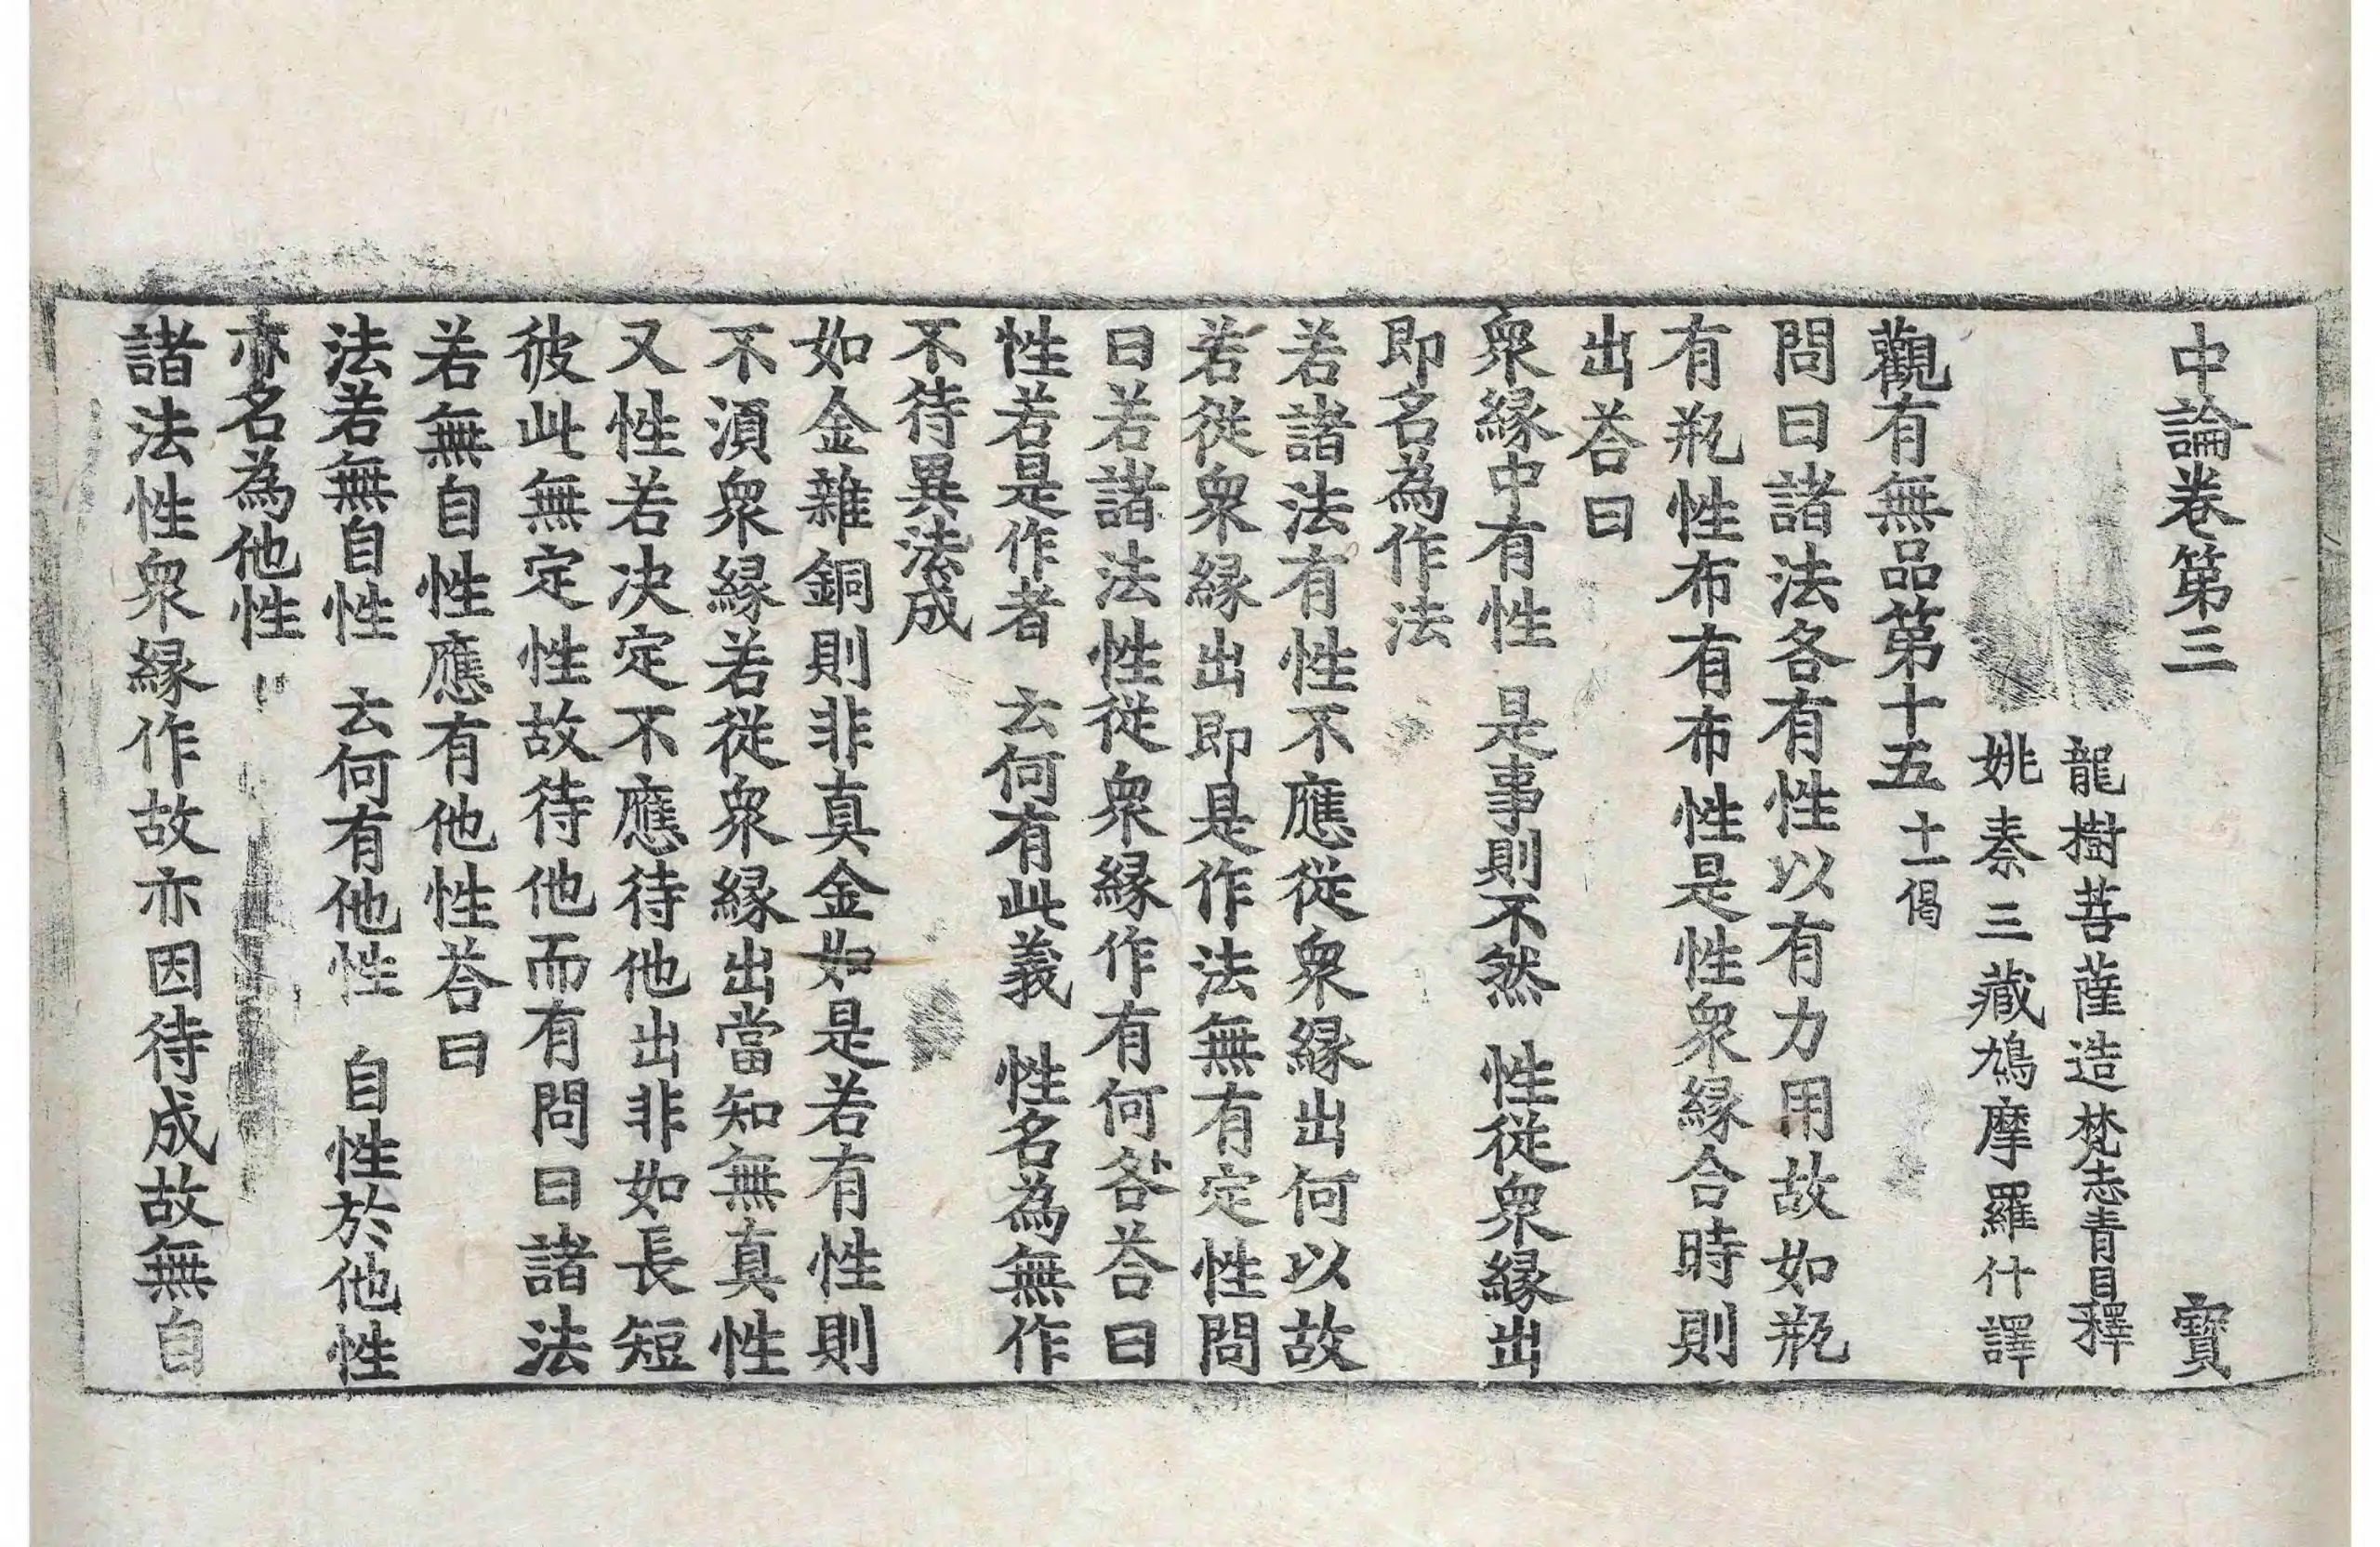 中論卷第三 寳
龍樹菩薩造梵志青目釋
姚秦三藏鳩摩羅什譯
觀有無品第十五 十一偈
問曰諸法各有性以有力用故如瓶
有瓶性布有布性是性衆緣合時則
出荅曰
衆緣中有性 是事則不然 性從衆緣出
即名為作法
若諸法有性不應從衆緣出何以故
若從衆緣出即是作法無有定性問
曰若諸法性從衆緣作有何咎荅曰
性若是作者 云何有此義 性名為無作
不待異法成
如金雜銅則非真金如是若有性則
不湏衆緣若從衆緣出當知無真性
又性若决定不應待他出非如長短
彼此無定性故待他而有問曰諸法
若無自性應有他性荅曰
法若無自性 云何有他性 自性於他性
亦名為他性
諸法性衆緣作故亦因待成故無自